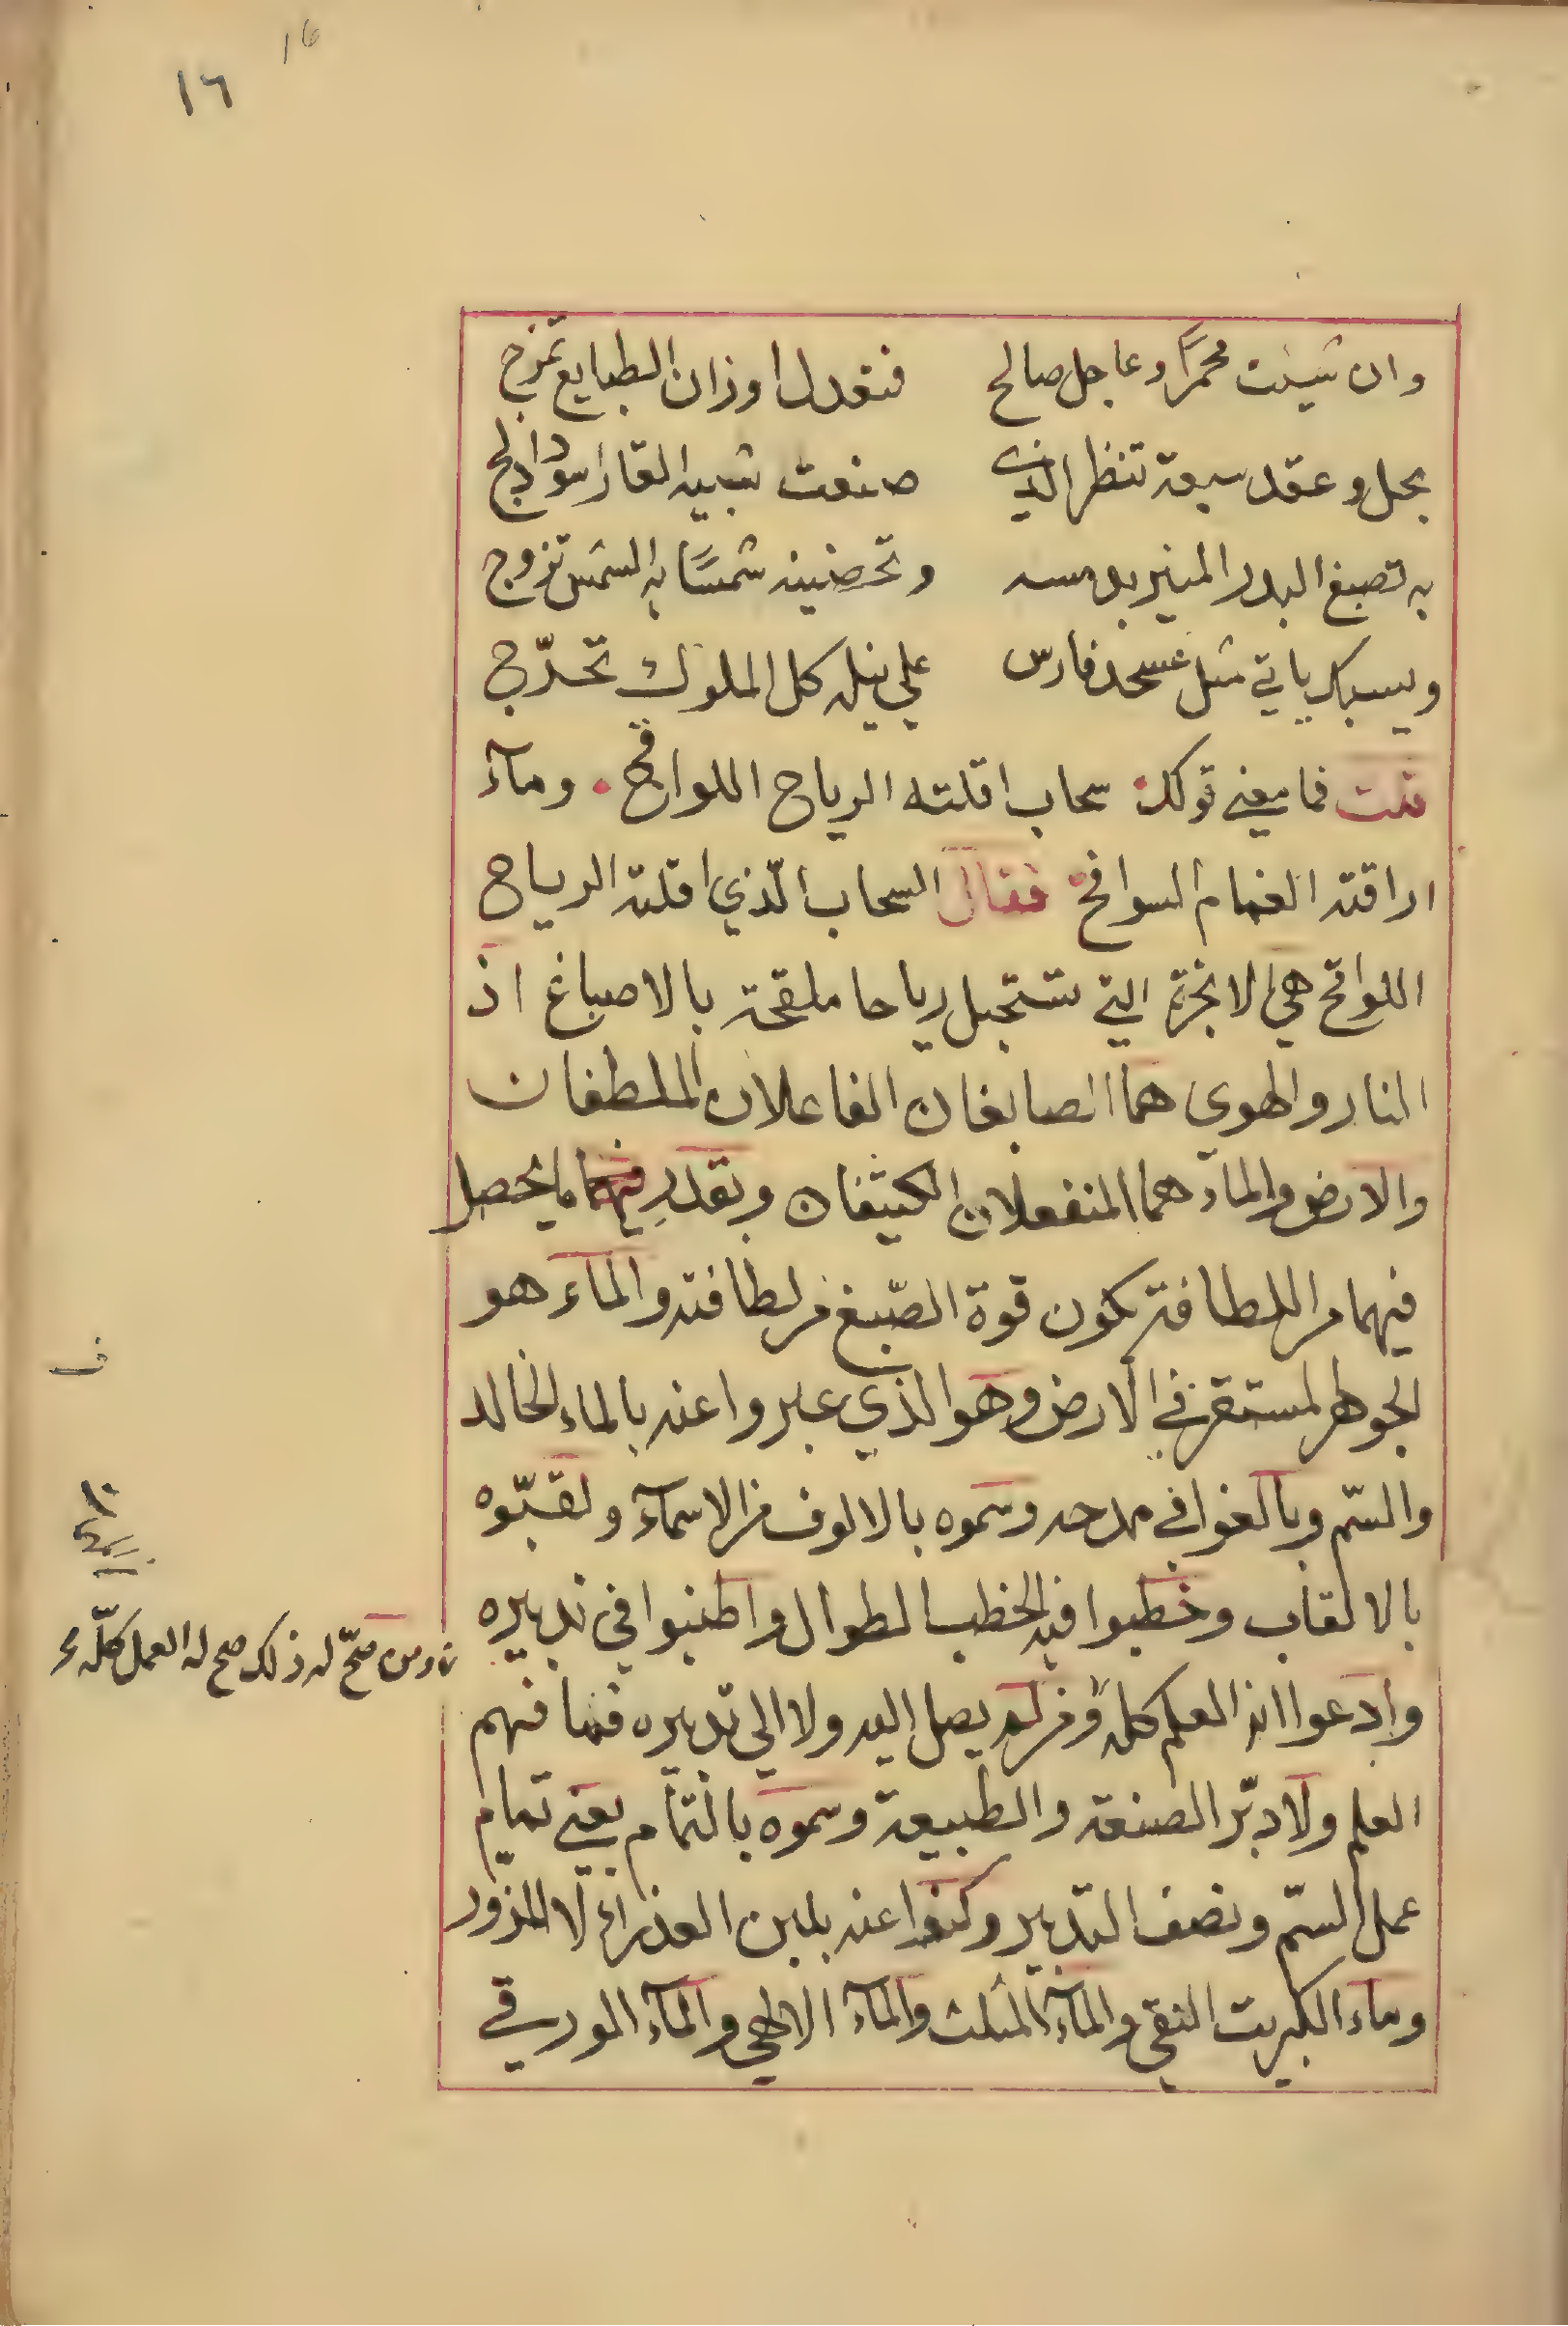 16
١٦
وان شيئت محمرًا وعاجل صالح فنعدل اوزان الطبايع تمزج
بحل وعقد سبعة تنظر الذي صنعت شبيه القار اسودا دلج
به تصبغ البدر المنير شمسًا به الشمس تزوج
ويسبك ياتي مثل عسجد فارس علي نيله كل الملوك تحدّج
قلت فما معني قولك سحاب اقلته الرياح اللواقح . ومآء
اراقته الغمام السوافح فقال السحاب الّذي اقلته الرياح
اللواقح هي الابخرة التي تستحيل رياحا ملقحة بالاصباغ اذ
النار والهوي هما الصابغان الفاعلان الملطفان
والارض والمآء هما المنفعلان الكثيفان وبقدر ما يحصل
فيهما من اللطافة تكون قوة الصّبغ من لطافته والمآء هو
الجوهر المستقر في الارض وهو الذي عبروا عنه بالماء الخالد
والسّم وبالغوا في مدحه وسموه بالالوف من الاسمآء ولقبّوه
بالالقاب وخطبوا فيه الخطب الطوال واطنبوا في تدبيره
وادعوا انه العلم كله ومن لم يصل اليه ولا الي تدبيره فما فهم
العلم ولا دبّر الصنعة والطبيعة وسموه بالتمام يعني تمام
عمل السّم ونصف التدبير وكنوا عنه بلبن العذراء لا المزور
وماء الكبريت النقي والمآء المثلث والمآء الالهي والمآء الورقي
ومن صحّ له ذلك صح له العمل كلّه